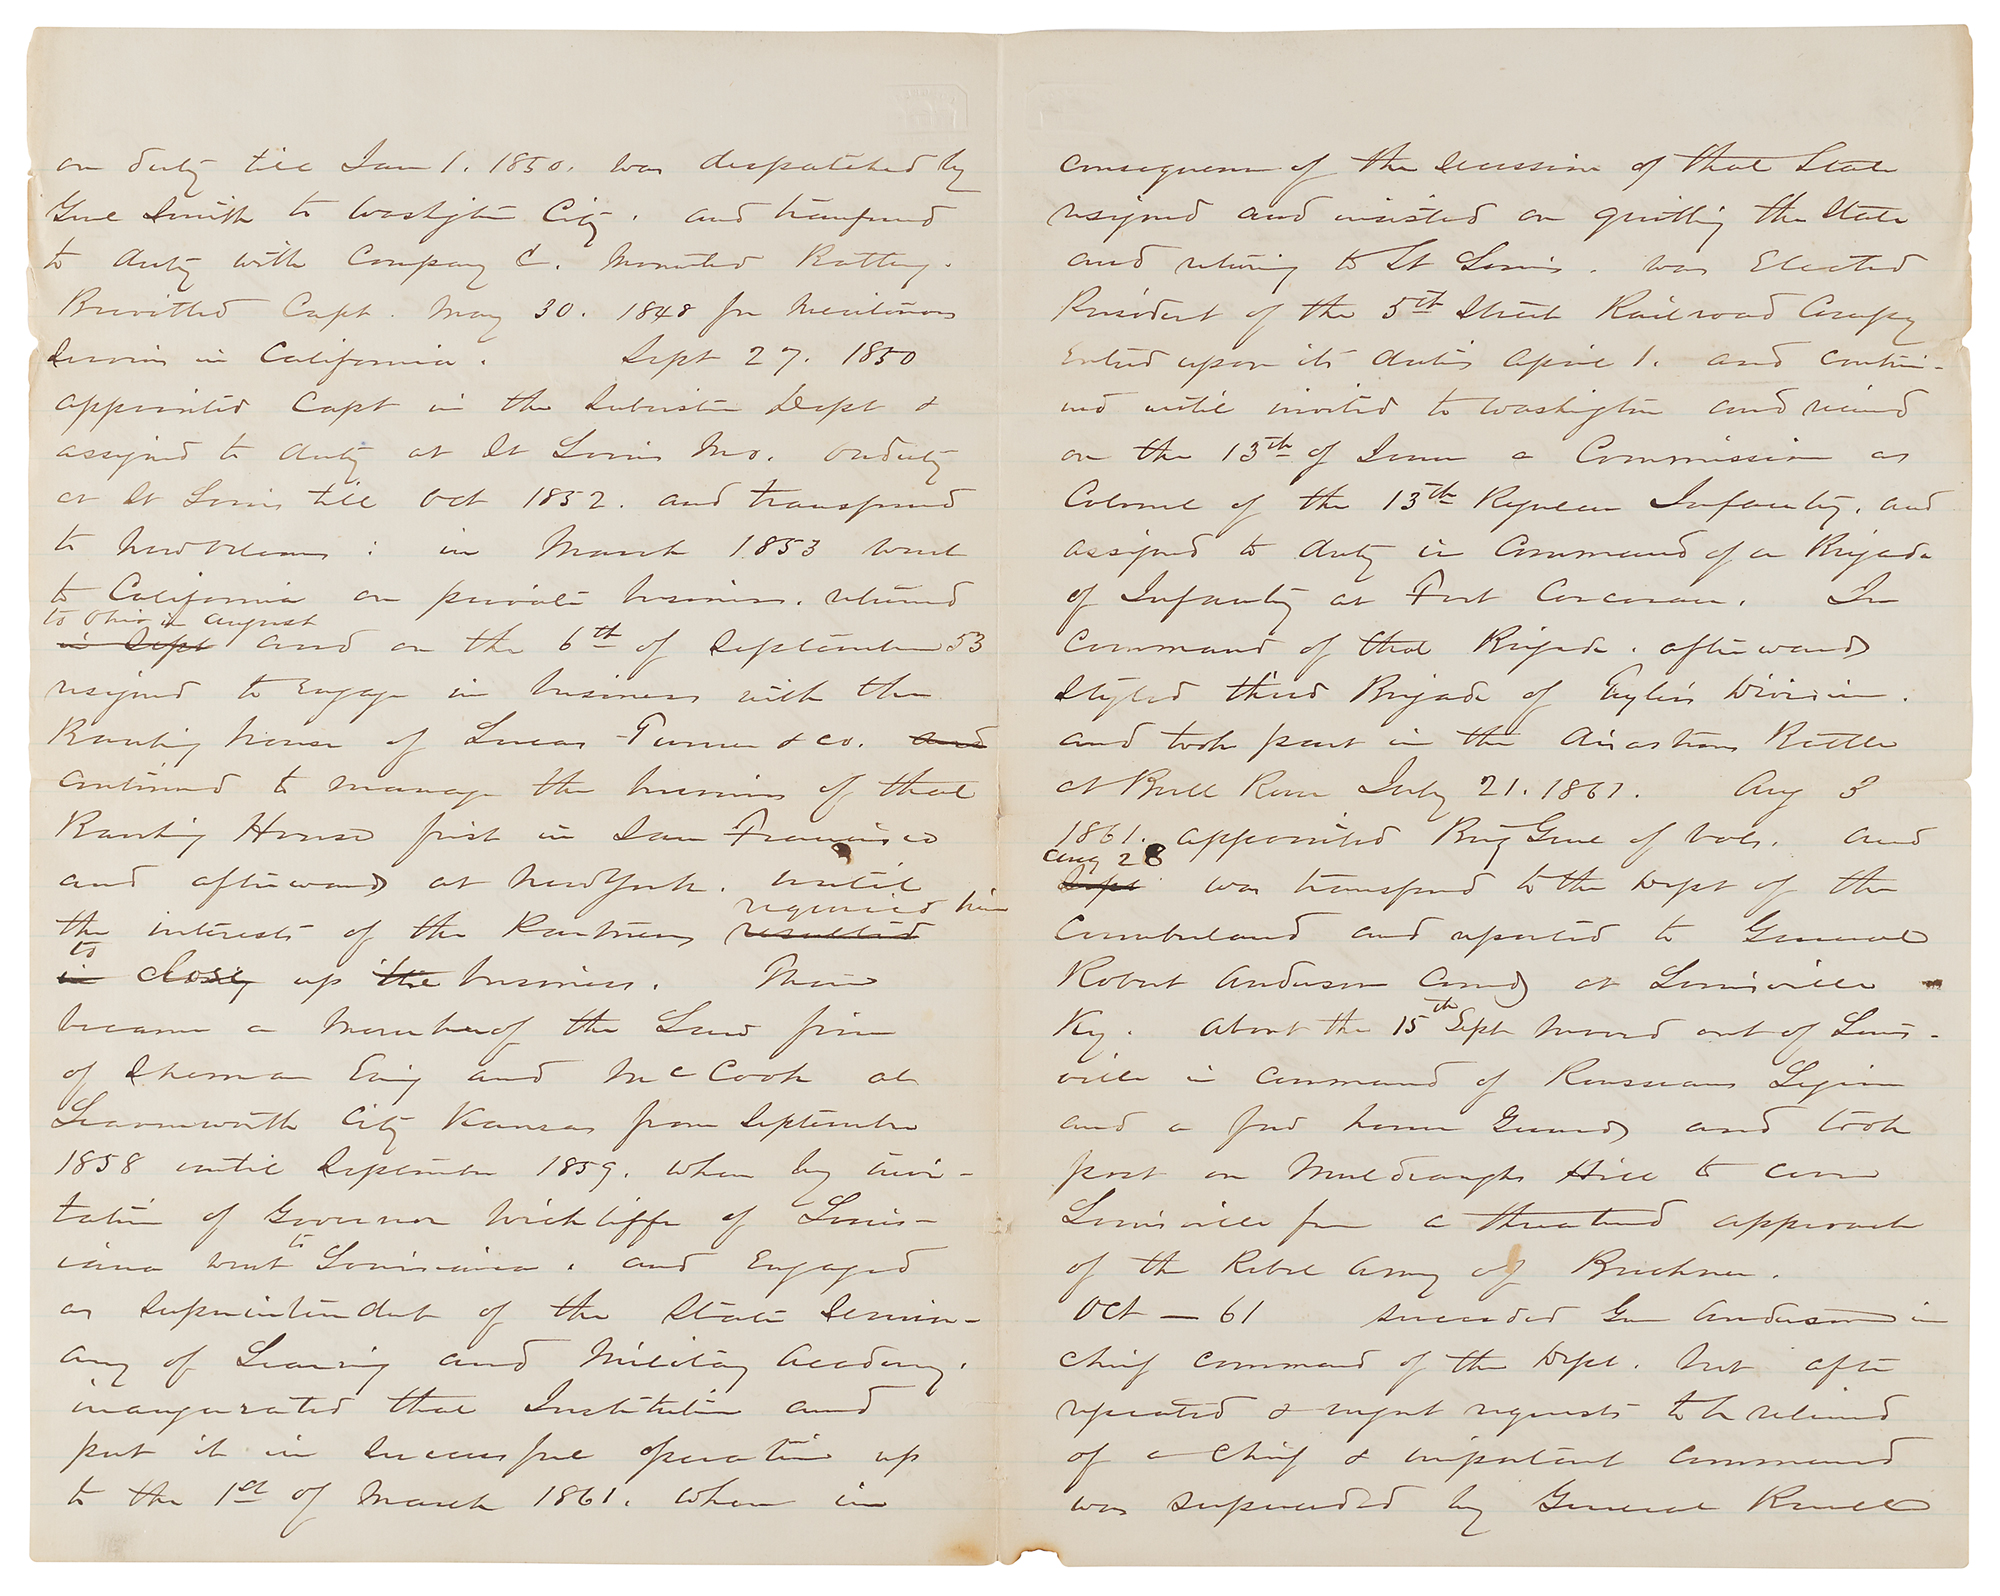 on duty till Jan 1. 1850. was despatched by
Genl Smith to Washington City. and transferred
to duty with Company C. Mounted Battery.
Brevetted Capt. May 30. 1848 for Meritorious
Services in California. Sept 27. 1850
appointed Capt in the Subsistce Dept &
assigned to duty at St Louis Mo. On duty
at St Louis till Oct 1852. and transferred
to New Orleans: in March 1853 went
to California on private business. returned
to Ohio in August
in Sept and on the 6th of September 53
resigned to Engage in business with the
Banking house of Lucas Turner & co. and
continued to manage the business of that
Banking House first in San Francisco
and afterwards at New York. until
required him
the interests of the Partners resulted
to
in closing up the business. Then
became a Member of the Law firm
of Sherman Ewing and McCook at
Leavenworth City Kansas from September
1858 until September 1859. when by invi-
tation of Governor Wickliffe of Louis-
to
iana went Louisiana. and Engaged
as Superintendent of the State Semin-
ary of Learning and Military Academy.
inaugurated that Institution and
put it in Successful operation up
to the 1st of March 1861. when in
consequence of the Secession of that State
resigned and insisted on quitting the State
and returning to St Louis. was Elected
President of the 5th Street Railroad Company
Entered upon its duties April 1. and contin-
ued until invited to Washington and received
on the 13th of June a Commission as
Colonel of the 13th Regular Infantry. and
assigned to duty in Command of a Brigade
of Infantry at Fort Corcoran. In
Command of that Brigade. afterwards
Styled third Brigade of Tyler's Division.
and took part in the disastrous Battle
at Bull Run July 21. 1861. Aug 3
1861. appointed Brig Genl of Vols. and
Aug 28
Sept was transferred to the Dept of the
Cumberland and reported to General
Robert Anderson Comdg at Louisville
Ky. About the 15th Sept moved out of Louis-
ville in command of Rousseaus Legion
and a few home Guards and took
post on Muldraughs Hill to cover
Louisville from a threatened approach
of the Rebel Army of Buckner.
Oct — 61 succeeded Gen Anderson in
chief command of the Dept. but after
repeated & urgent requests to be relieved
of a chief & important command
was superseded by General Buell